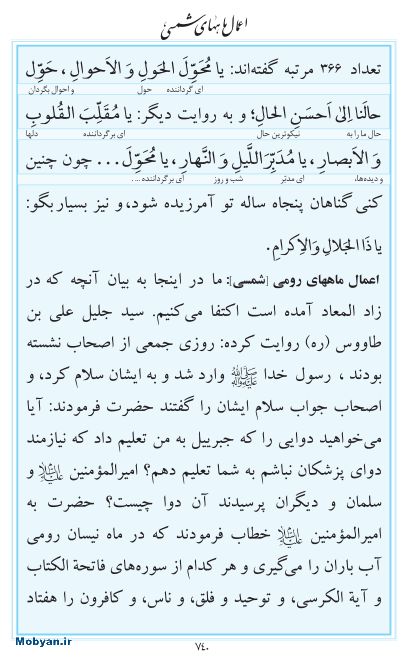 اعمال ماههای شمسی
تعداد ۳۶۶ مرتبه گفته‌اند: یا مُحَوِّلَ الحَولِ وَ الاَحوالِ، حَوِّل
ای گرداننده حول و احوال بگردان
حالَنا اِلیٰ اَحسَنِ الحالِ؛ و به روایت دیگر: یا مُقَلِّبَ القُلوبِ
حال ما را به نیکوترین حال ای برگرداننده دلها
وَ الاَبصارِ، یا مُدَبِّرَ اللَّیلِ وَ النَّهارِ، یا مُحَوِّلَ... چون چنین
و دیده‌ها، ای مدبّر شب و روز ای برگرداننده ....
کنی گناهان پنجاه ساله تو آمرزیده شود، و نیز بسیار بگو:
یا ذَا الجَلالِ وَ الاِکرامِ.
اعمال ماههای رومی [شمسی]: ما در اینجا به بیان آنچه که در
زاد المعاد آمده است اکتفا می‌کنیم. سید جلیل علی بن
طاووس (ره) روایت کرده: روزی جمعی از اصحاب نشسته
بودند، رسول خدا ﷺ وارد شد و به ایشان سلام کرد، و
اصحاب جواب سلام ایشان را گفتند حضرت فرمودند: آیا
می‌خواهید دوایی را که جبرییل به من تعلیم داد که نیازمند
دوای پزشکان نباشم به شما تعلیم دهم؟ امیرالمؤمنین علیه‌السلام و
سلمان و دیگران پرسیدند آن دوا چیست؟ حضرت به
امیرالمؤمنین علیه‌السلام خطاب فرمودند که در ماه نیسان رومی
آب باران را می‌گیری و هر کدام از سوره‌های فاتحة الکتاب
و آیة الکرسی، و توحید و فلق، و ناس، و کافرون را هفتاد
Mobyan.ir
۷۴۰